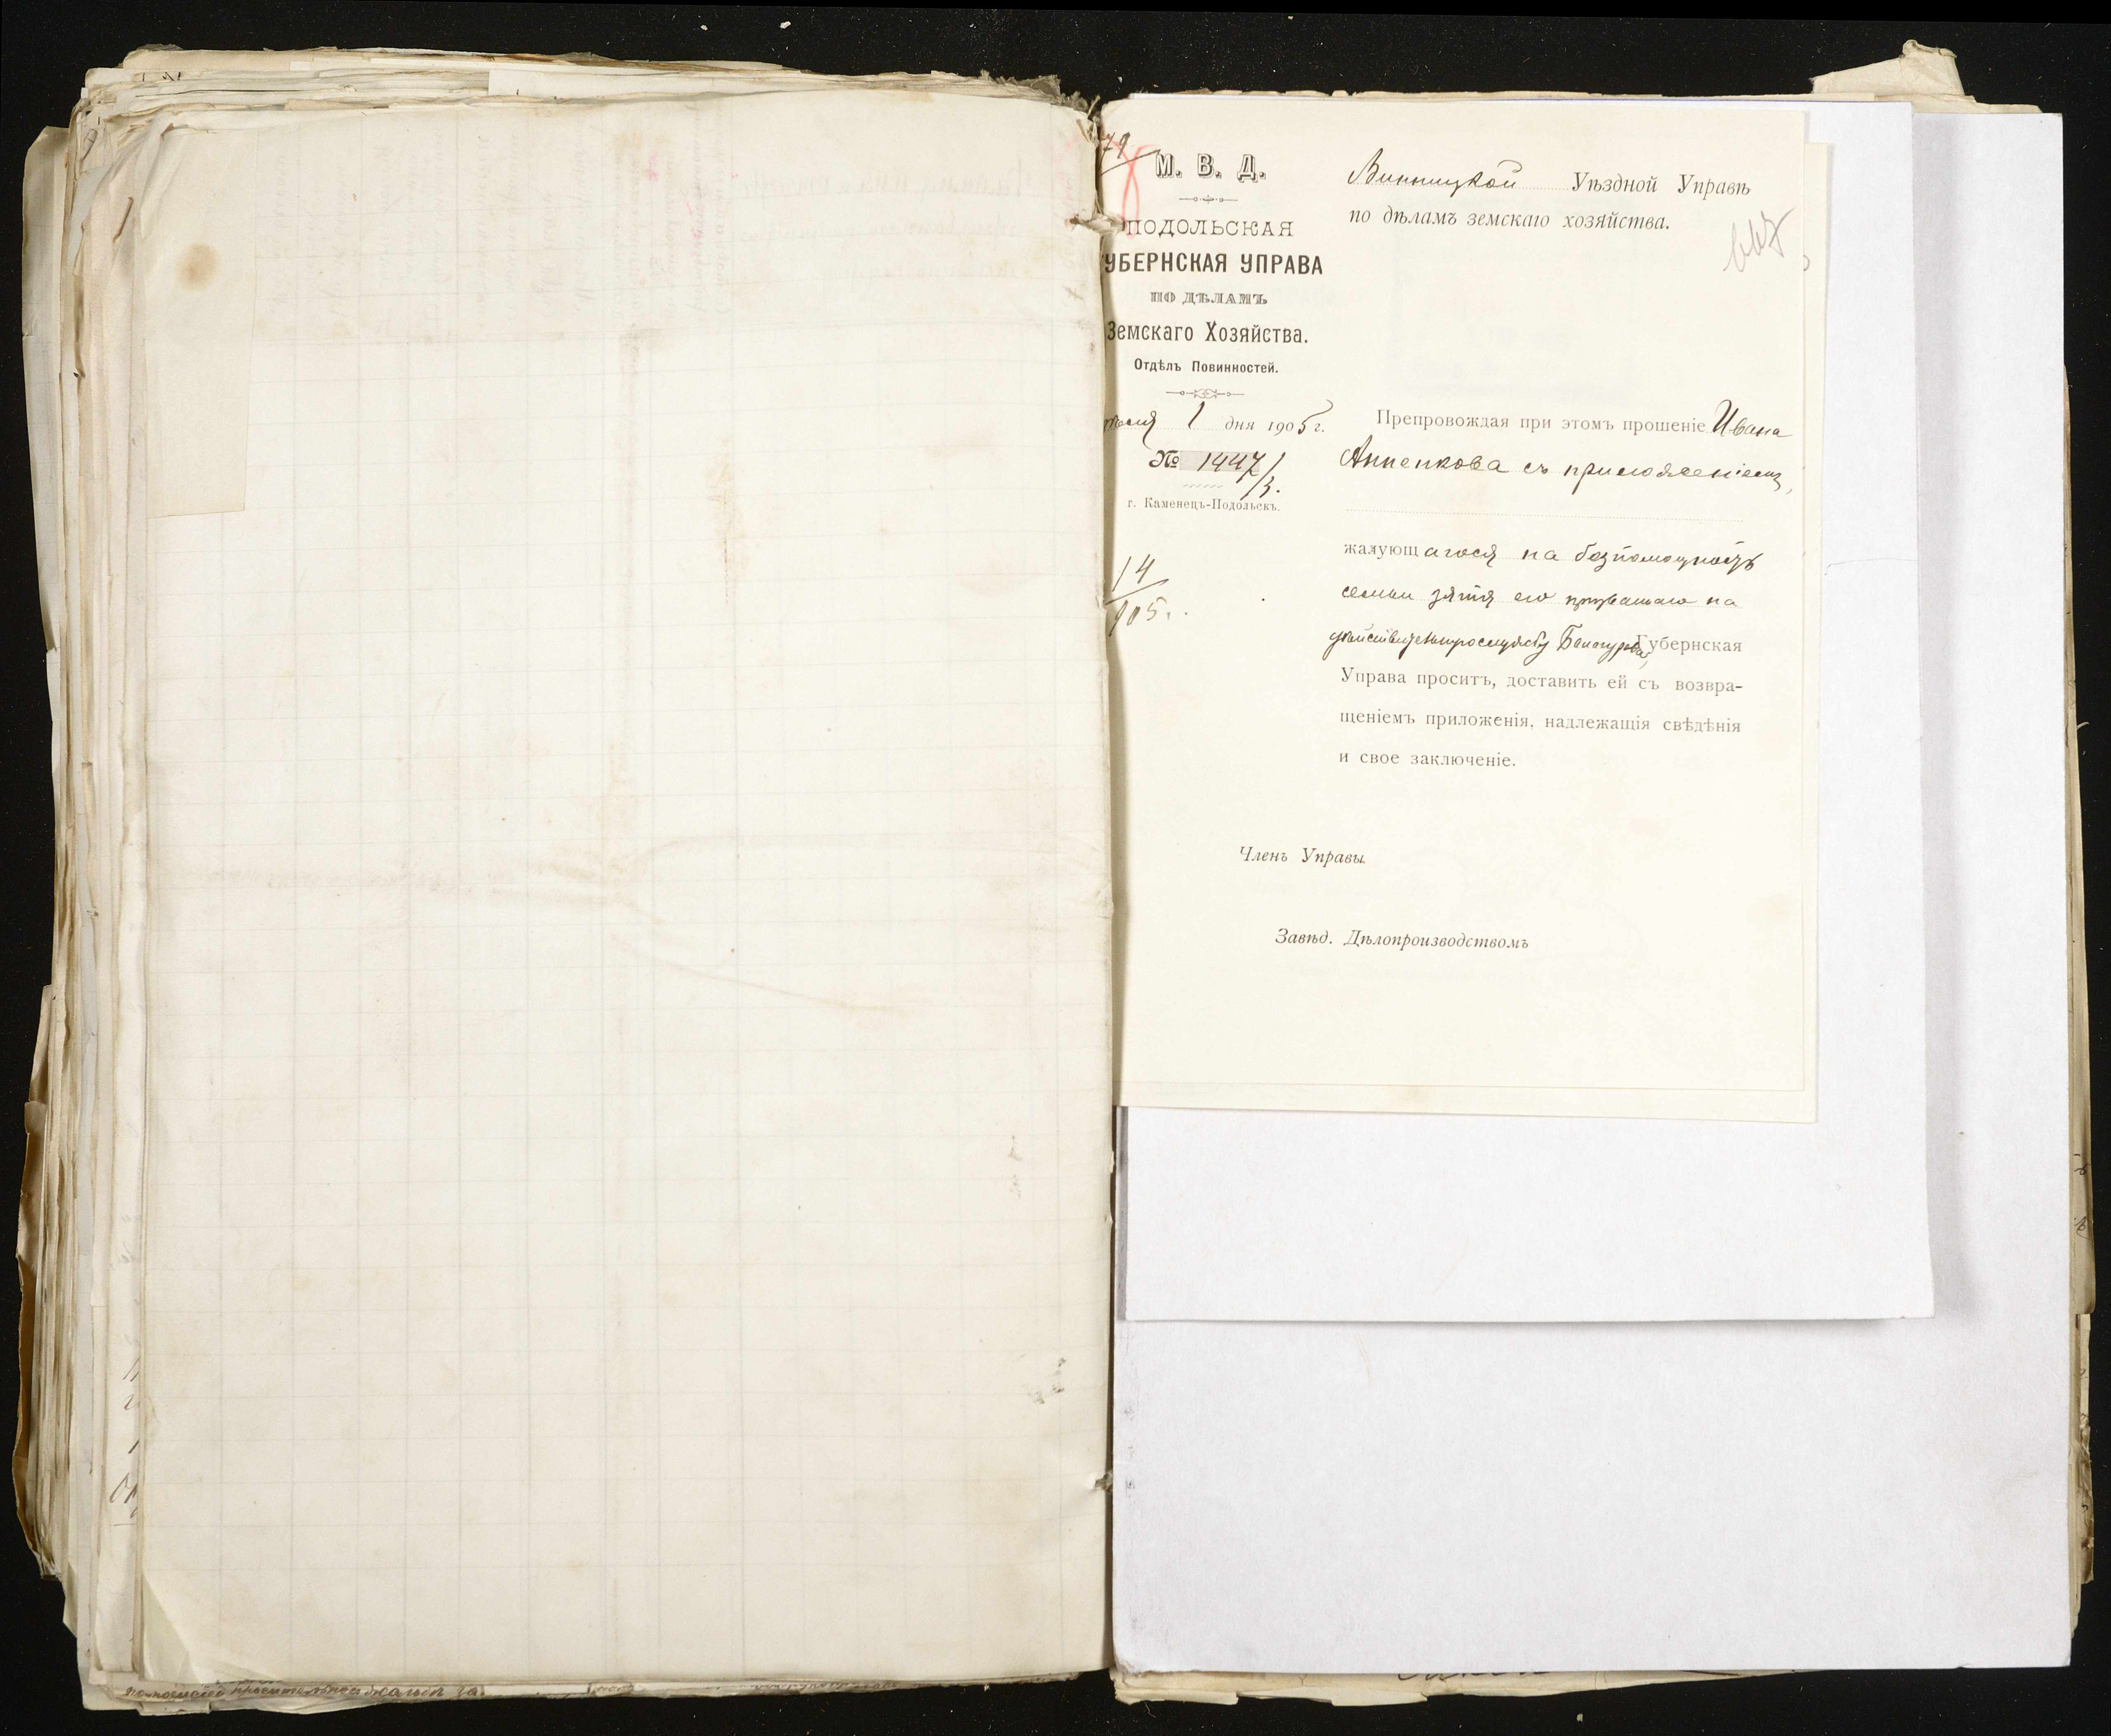 79
М. В. Д.
ПОДОЛЬСКАЯ
УБЕРНСКАЯ УПРАВА
ПО ДѢЛАМЪ
Земскаго Хозяйства.
Отдѣлъ Повинностей.
1 дня 1905 г.
№ 1447/3.
г. Каменецъ-Подольскъ.
14
905.
Винницкой Уѣздной Управѣ
по дѣламъ земскаго хозяйства.
Препровождая при этомъ прошеніе Ивана
Анненкова съ приложеніемъ,
жалующагося на безпомощность
семьи зятя его призваннаго на
дѣйствительную службу Губернская
Управа проситъ, доставить ей съ возвра-
щеніемъ приложенія, надлежащія свѣдѣнія
и свое заключеніе.
Членъ Управы
Завѣд. Дѣлопроизводствомъ